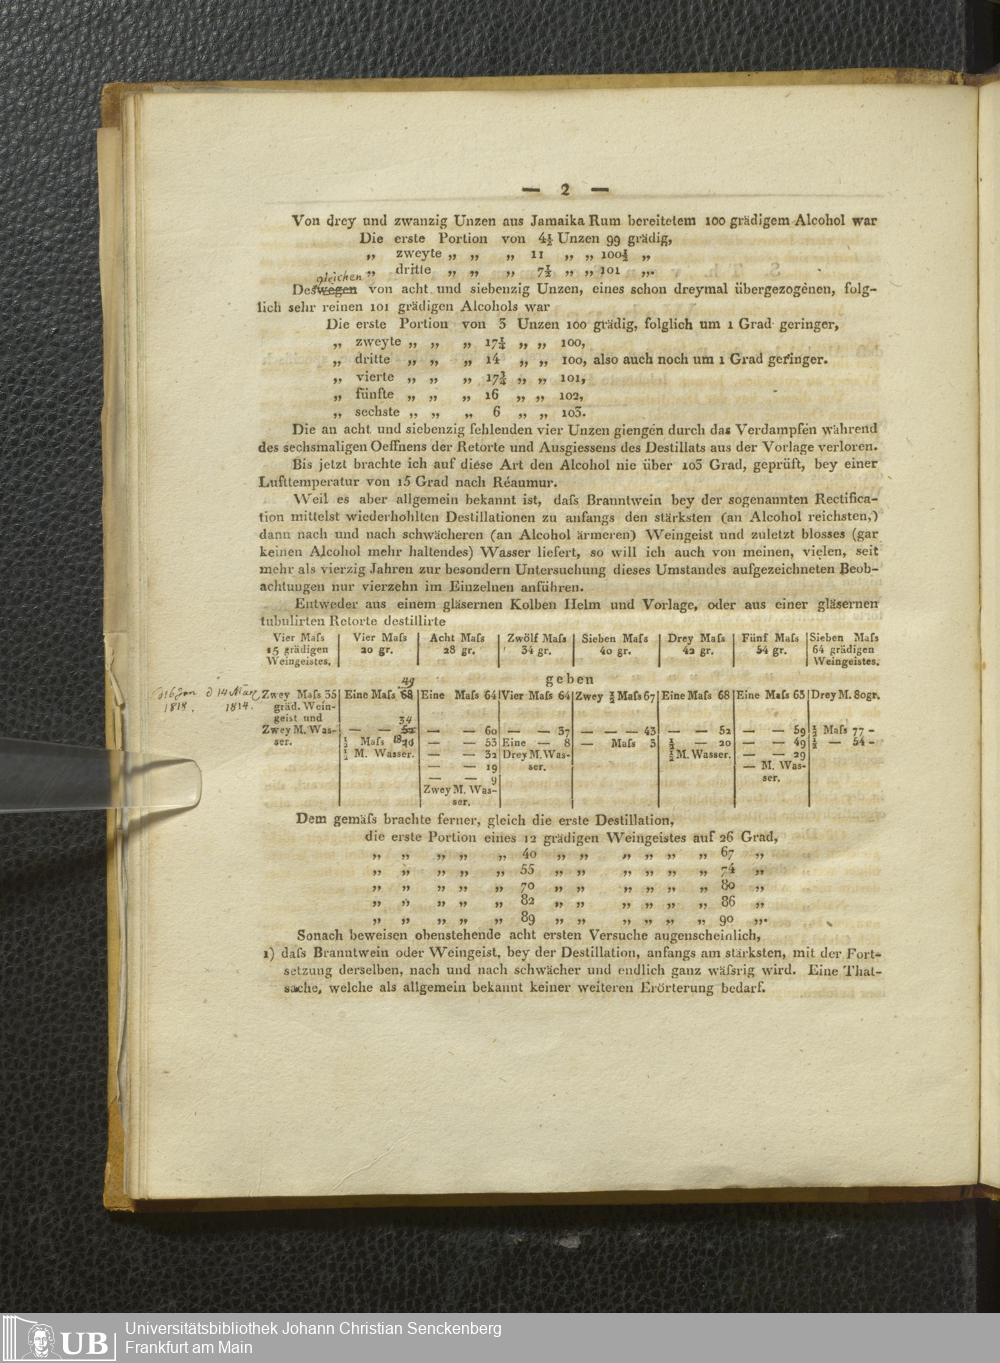 — 2 —
Von drey und zwanzig Unzen aus Jamaika Rum bereitetem 100 grädigem Alcohol war
Die erste Portion von 4½ Unzen 99 grädig,
„ zweyte „ „ „ 11 „ „ 100½ „
„ dritte „ „ „ 7½ „ „ 101 „.
gleichen
Deswegen von acht und siebenzig Unzen, eines schon dreymal übergezogenen, folg-
lich sehr reinen 101 grädigen Alcohols war
Die erste Portion von 3 Unzen 100 grädig, folglich um 1 Grad geringer,
„ zweyte „ „ „ 17¼ „ „ 100,
„ dritte „ „ „ 14 „ „ 100, also auch noch um 1 Grad geringer.
„ vierte „ „ „ 17¾ „ „ 101,
„ fünfte „ „ „ 16 „ „ 102,
„ sechste „ „ „ 6 „ „ 103.
Die an acht und siebenzig fehlenden vier Unzen giengen durch das Verdampfen während
des sechsmaligen Oeffnens der Retorte und Ausgiessens des Destillats aus der Vorlage verloren.
Bis jetzt brachte ich auf diese Art den Alcohol nie über 103 Grad, geprüft, bey einer
Lufttemperatur von 15 Grad nach Réaumur.
Weil es aber allgemein bekannt ist, daſs Branntwein bey der sogenannten Rectifica-
tion mittelst wiederhohlten Destillationen zu anfangs den stärksten (an Alcohol reichsten,)
dann nach und nach schwächeren (an Alcohol ärmeren) Weingeist und zuletzt blosses (gar
keinen Alcohol mehr haltendes) Wasser liefert, so will ich auch von meinen, vielen, seit
mehr als vierzig Jahren zur besondern Untersuchung dieses Umstandes aufgezeichneten Beob-
achtungen nur vierzehn im Einzelnen anführen.
Entweder aus einem gläsernen Kolben Helm und Vorlage, oder aus einer gläsernen
tubulirten Retorte destillirte
Vier Maſs | Vier Maſs | Acht Maſs | Zwölf Maſs | Sieben Maſs | Drey Maſs | Fünf Maſs | Sieben Maſs
15 grädigen | 20 gr. | 28 gr. | 34 gr. | 40 gr. | 42 gr. | 54 gr. | 64 grädigen
Weingeistes. Weingeistes.
49
geben
d 14 März Zwey Maſs 35 | Eine Maſs 68 | Eine Maſs 64 | Vier Maſs 64 | Zwey ½ Maſs 67 | Eine Maſs 68 | Eine Maſs 63 | Drey M. 80gr.
1818. 1814. gräd. Wein-
geist und 34
Zwey M. Was- | — — 52 | — — 60 | — — 37 | — — — 43 | — — 52 | — — 59 | ½ Maſs 77 -
ser. | ½ Maſs | — — 53 | Eine — 8 | — Maſs 3 | ½ — 20 | — — 49 | ½ — 54 -
½ M. Wasser. | — — 32 | Drey M. Was- | ½ M. Wasser. | — — 29
— — 19 | ser. | — M. Was-
— — 9 | ser.
Zwey M. Was-
ser.
Dem gemäſs brachte ferner, gleich die erste Destillation,
die erste Portion eines 12 grädigen Weingeistes auf 26 Grad,
„ „ „ „ „ 40 „ „ „ „ „ „ 67 „
„ „ „ „ „ 55 „ „ „ „ „ „ 74 „
„ „ „ „ „ 70 „ „ „ „ „ „ 80 „
„ „ „ „ „ 82 „ „ „ „ „ „ 86 „
„ „ „ „ „ 89 „ „ „ „ „ „ 90 „.
Sonach beweisen obenstehende acht ersten Versuche augenscheinlich,
1) daſs Branntwein oder Weingeist, bey der Destillation, anfangs am stärksten, mit der Fort-
setzung derselben, nach und nach schwächer und endlich ganz wäſsrig wird. Eine That-
sache, welche als allgemein bekannt keiner weiteren Erörterung bedarf.
UB
Universitätsbibliothek Johann Christian Senckenberg
Frankfurt am Main